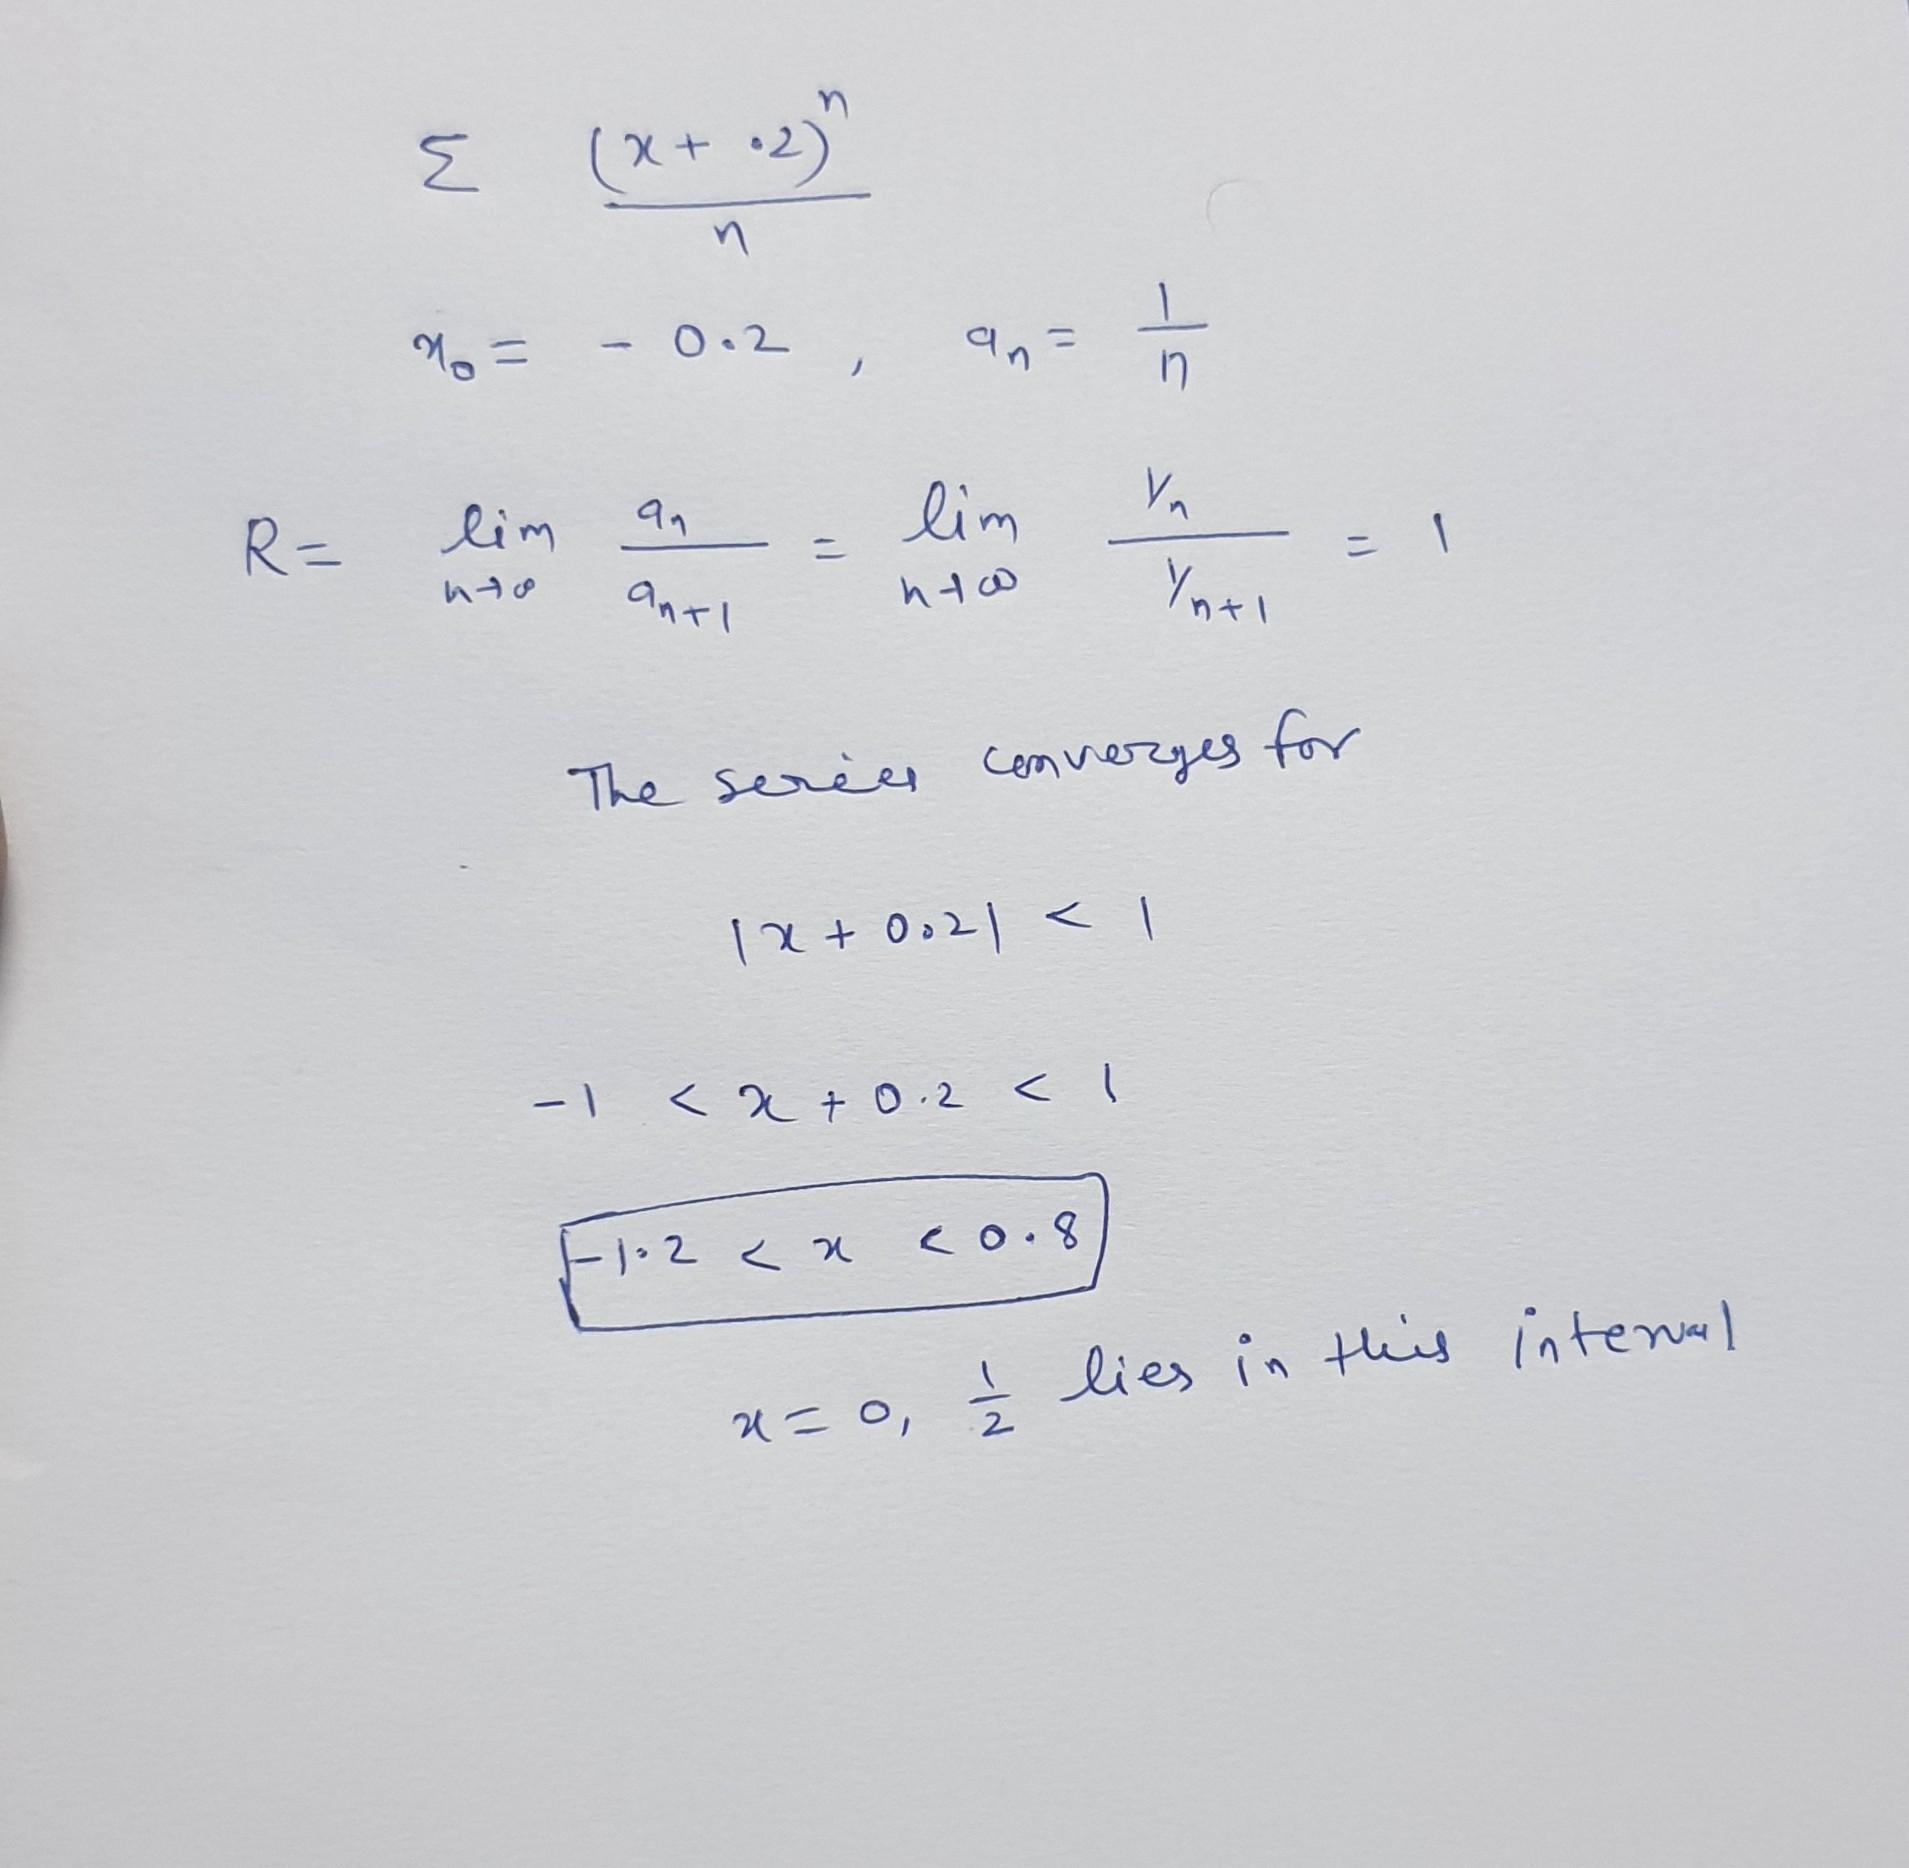 Σ (x + .2)^n / n
x₀ = - 0.2 , aₙ = 1/n
R = lim n→∞ aₙ/aₙ₊₁ = lim n→∞ (1/n)/(1/n+1) = 1
The series converges for
|x + 0.2| < 1
-1 < x + 0.2 < 1
-1.2 < x < 0.8
x = 0, 1/2 lies in this interval